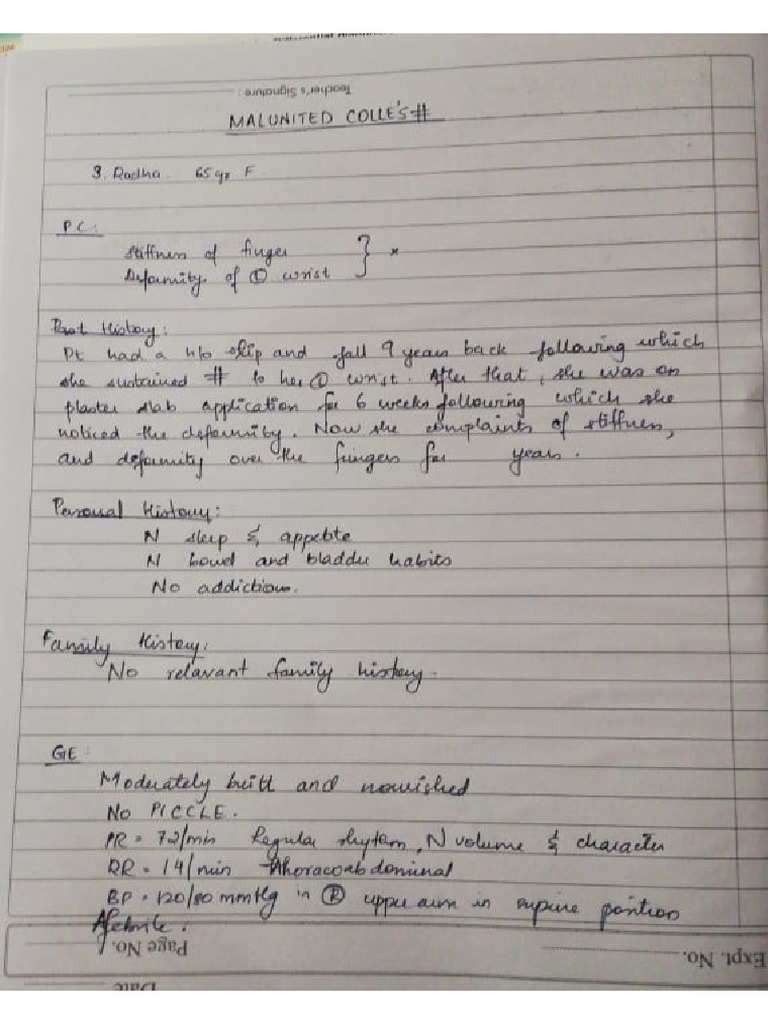 Teacher's Signature :
MALUNITED COLLE'S #
3. Radha. 65 yr F
PC:
Stiffness of finger
Deformity of Ⓛ wrist } x
Past History:
Pt had a h/o slip and fall 9 years back following which
she sustained # to her Ⓛ wrist. After that, she was on
plaster slab application for 6 weeks following which she
noticed the deformity. Now she complaints of stiffness,
and deformity over the fingers for years.
Personal History:
N sleep & appetite
N bowel and bladder habits
No addictions.
Family History:
No relavant family history.
GE:
Moderately built and nourished
No PICCLE.
PR = 72/min Regular rhytem, N volume & character
RR = 14/min Thoracoabdominal
BP = 120/80 mmHg in Ⓡ upper arm in supine position
Afebrile.
Page No.
Expt. No.
Date